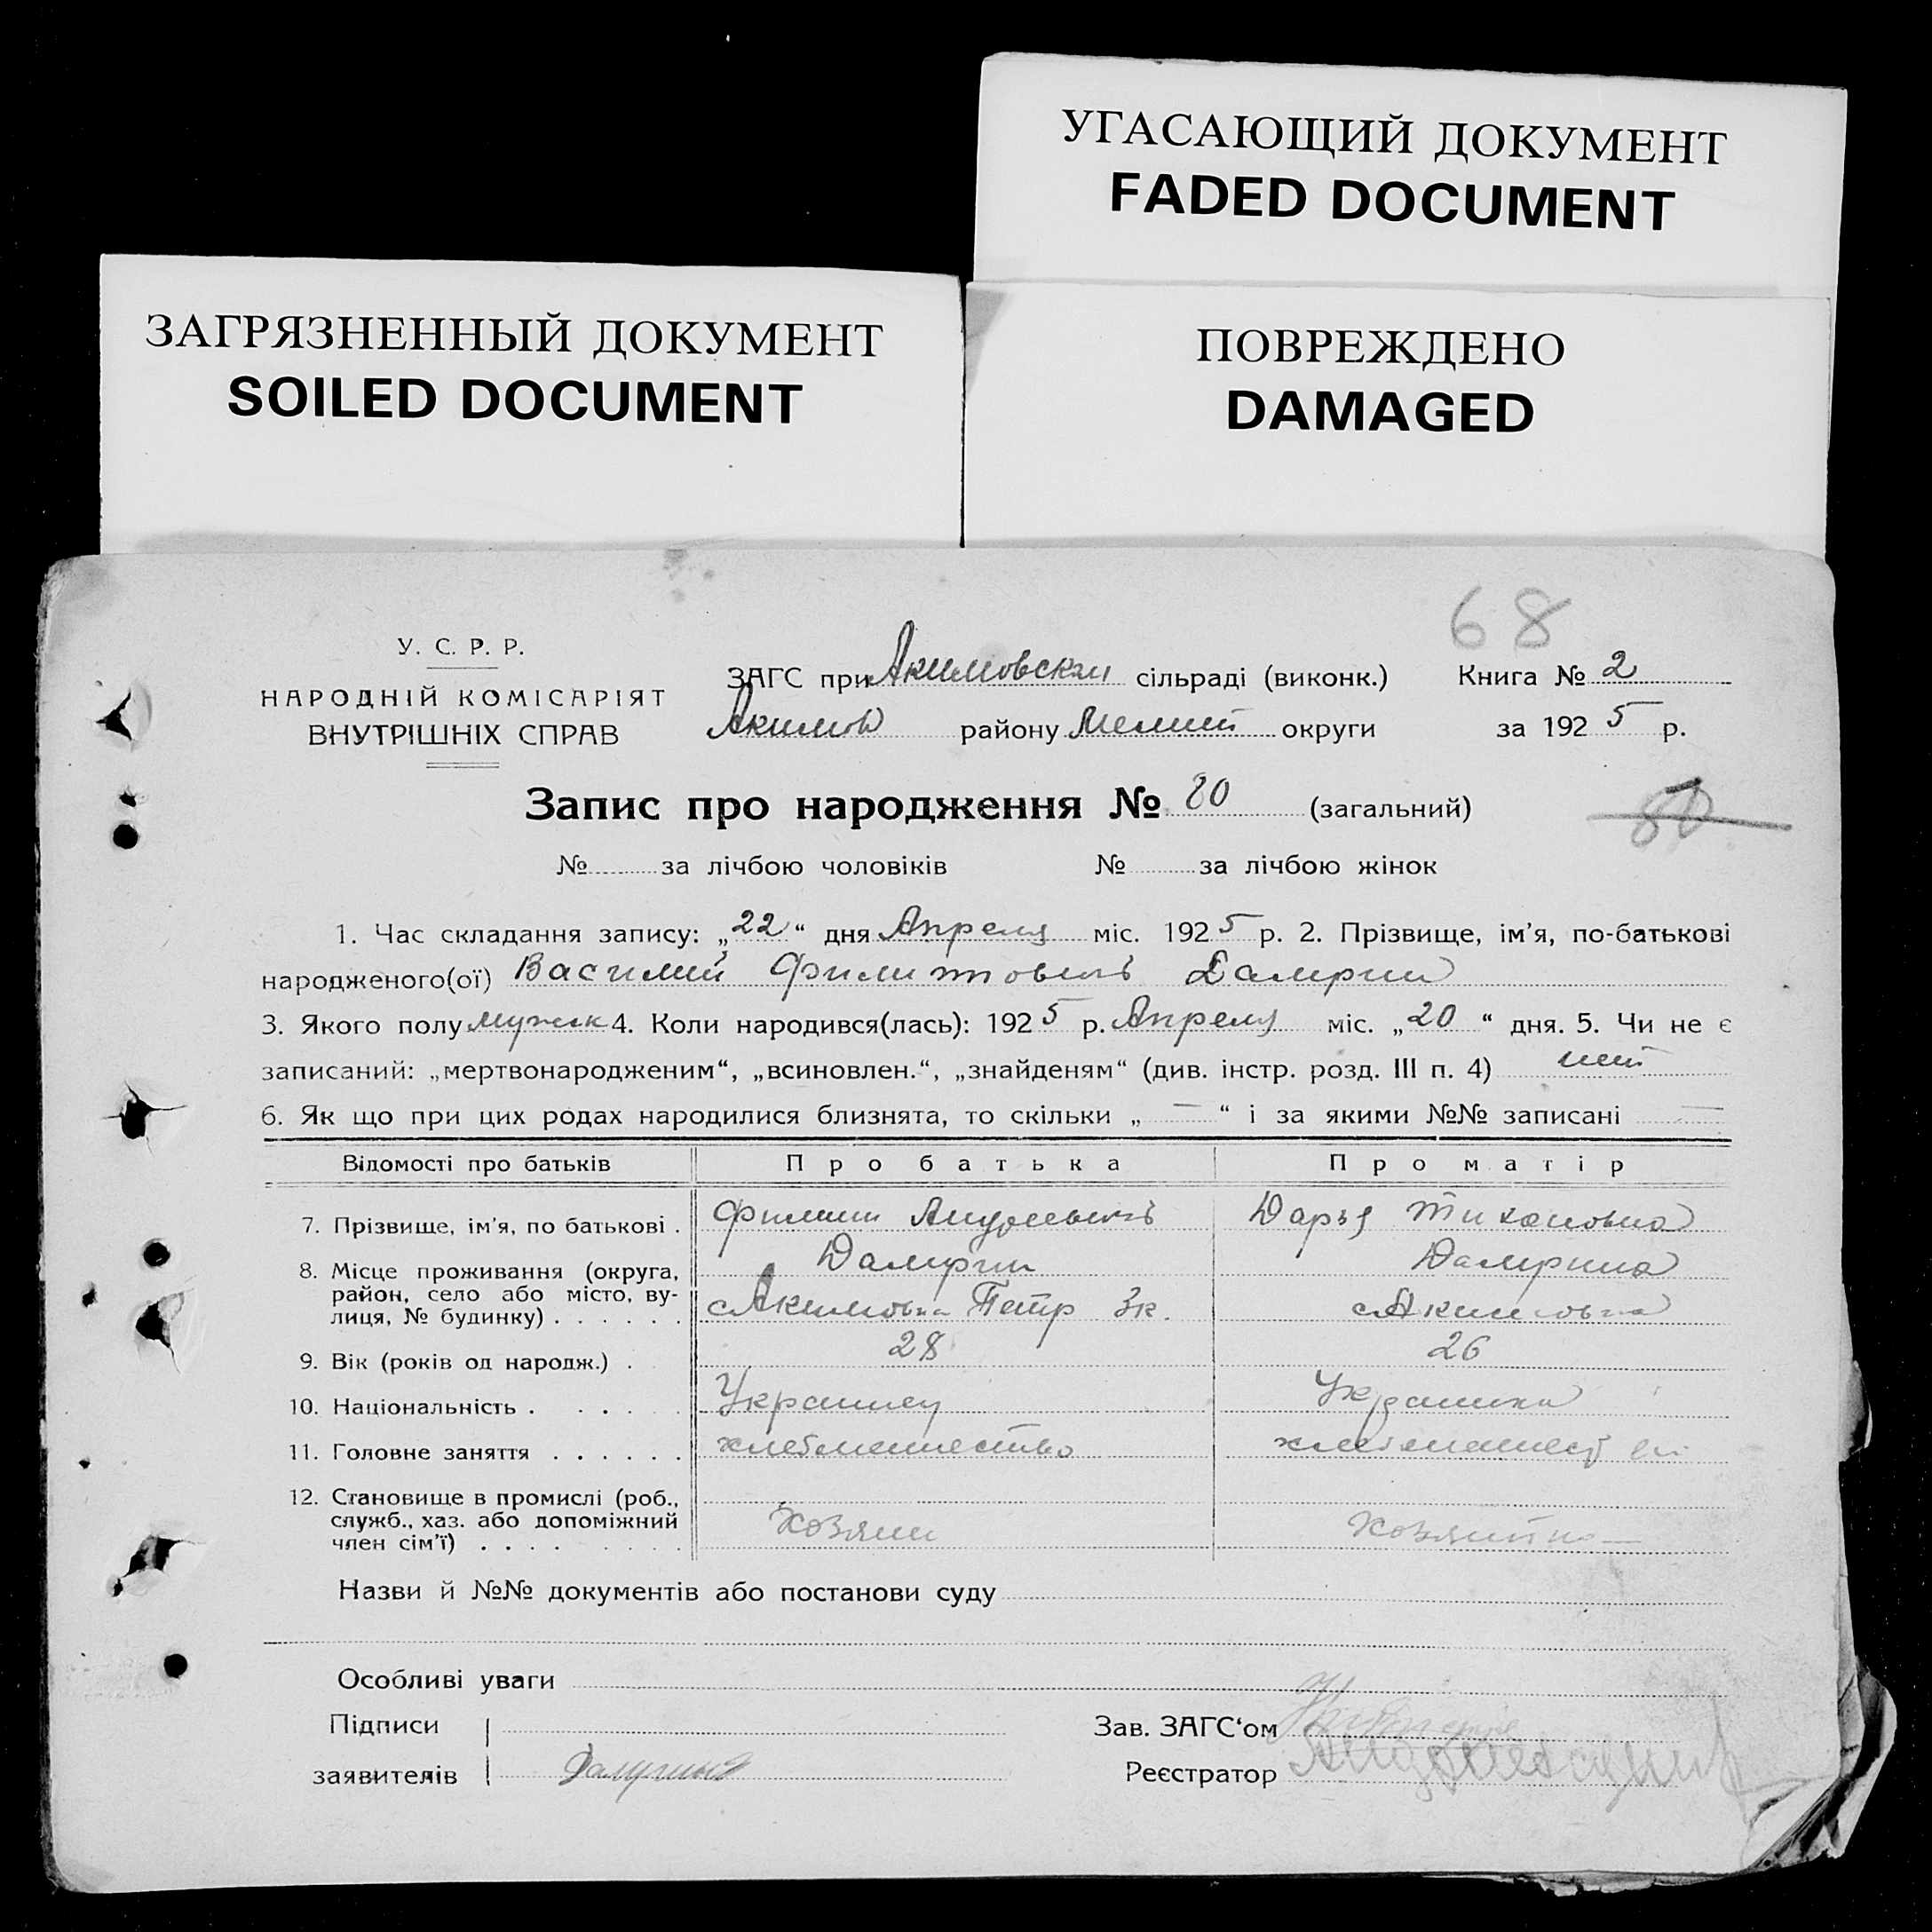 УГАСАЮЩИЙ ДОКУМЕНТ
FADED DOCUMENT
ЗАГРЯЗНЕННЫЙ ДОКУМЕНТ
SOILED DOCUMENT
ПОВРЕЖДЕНО
DAMAGED
68
У. С. Р. Р.
НАРОДНІЙ КОМІСАРІЯТ
ВНУТРІШНІХ СПРАВ
ЗАГС при Акимовском сільраді (виконк.) Книга № 2
Акимов району Мелит округи за 1925 р.
Запис про народження № 80 (загальний) 80
№ за лічбою чоловіків № за лічбою жінок
1. Час складання запису: „22“ дня Апреля міс. 1925 р. 2. Прізвище, ім’я, по-батькові
народженого(ої) Василий Филиппович
3. Якого полу мужск 4. Коли народився(лась): 1925 р. Апреля міс. „20“ дня. 5. Чи не є
записаний: „мертвонародженим“, „всиновлен.“, „знайденям“ (див. інстр. розд. III п. 4) нет
6. Як що при цих родах народилися близнята, то скільки „ — “ і за якими №№ записані —
Відомості про батьків Про батька Про матір
7. Прізвище, ім’я, по батькові . Филипп Андреевич Дарья Тихоновна
8. Місце проживання (округа,
район, село або місто, ву-
лиця, № будинку) . . . . . . с Акимовка Петр с Акимовка
9. Вік (років од народж.) . 28 26
10. Національність . . . . Украинец Украинка
11. Головне заняття . . . . . . хлебопашество
12. Становище в промислі (роб.,
служб., хаз. або допоміжний
член сім’ї) . . . . . . . . Хозяин Хозяйка
Назви й №№ документів або постанови суду
Особливі уваги
Підписи Зав. ЗАГС‘ом
заявителів Реєстратор